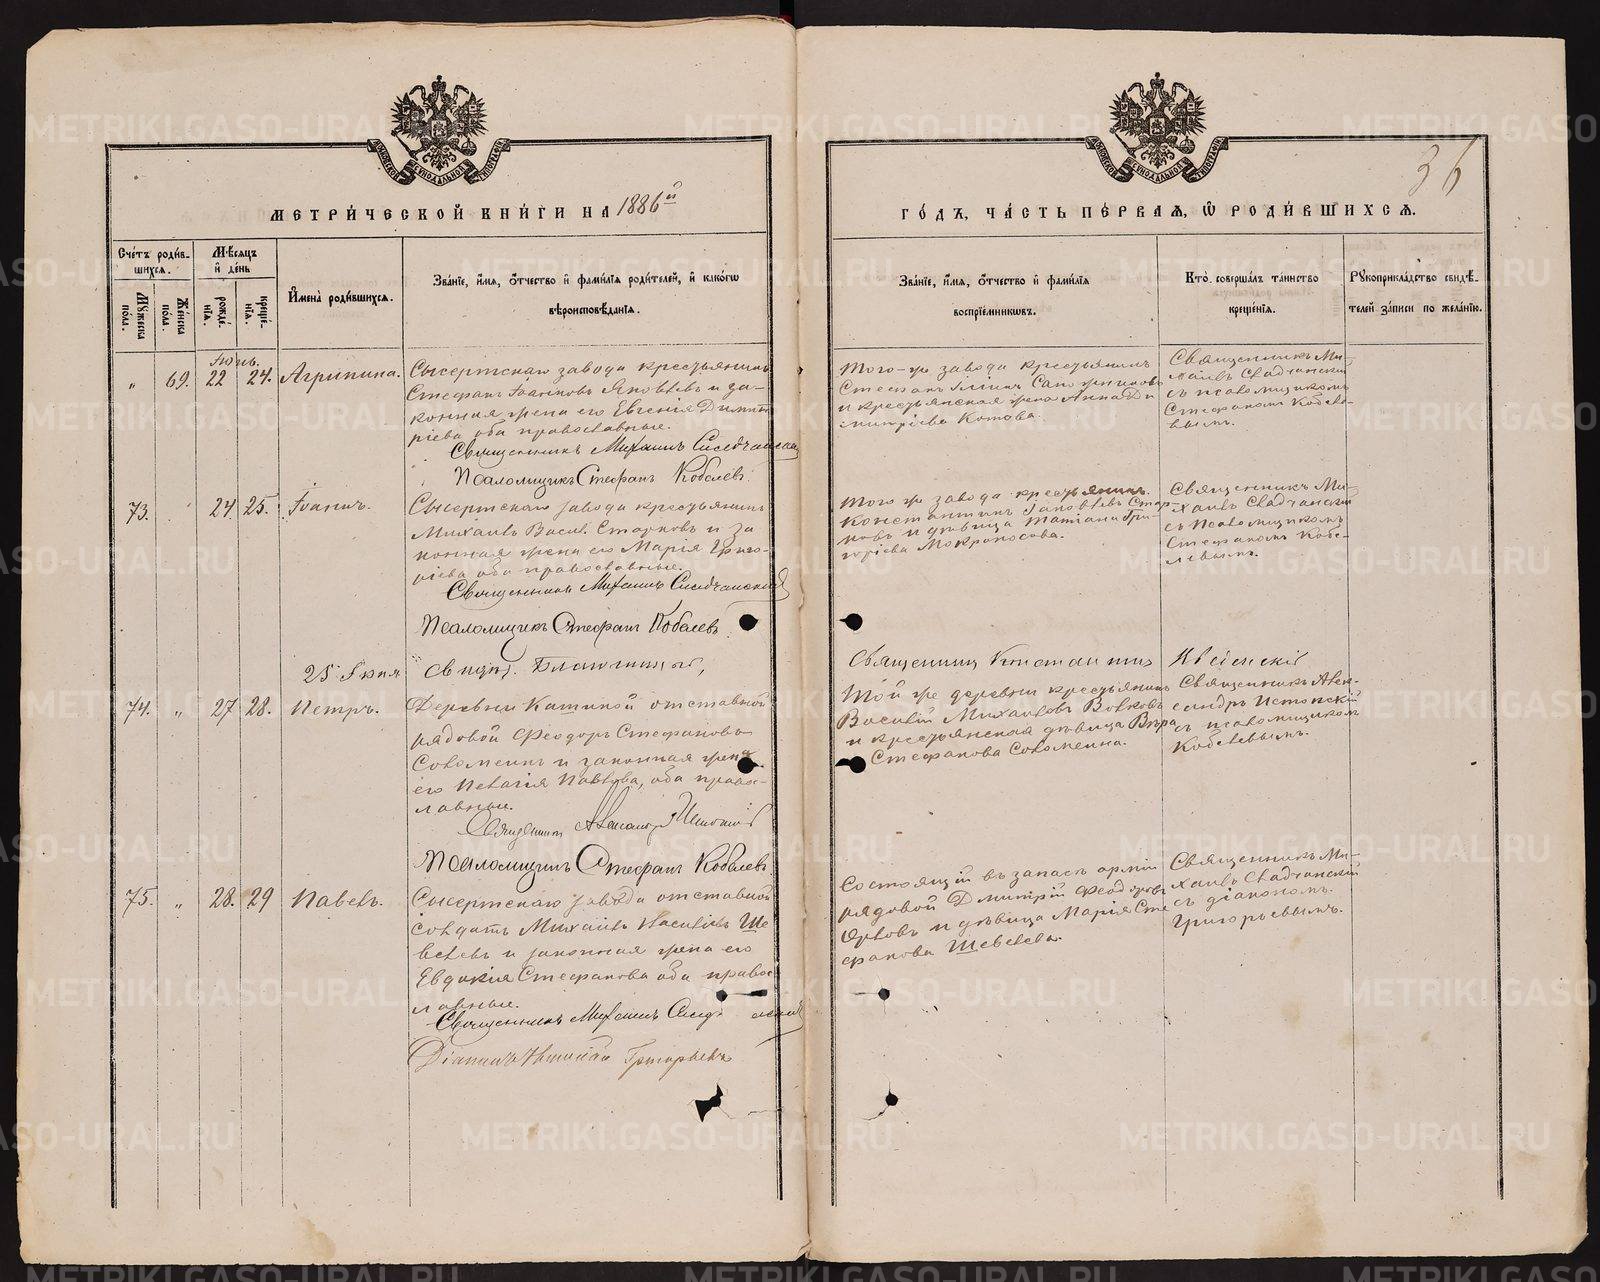 36
МЕТРИ́ЧЕСКОЙ КНИ́ГИ НА 1886й
ГО́ДЪ, ЧА́СТЬ ПЕ́РВАЯ, Ѡ РОДИ́ВШИХСЯ.
Сче́тъ роди́в-
шихся.
Му́жеска по́ла.
Же́нска по́ла.
Мѣ́сяцъ
и де́нь
рожде́-
нія.
креще́-
нія.
Имена̀ роди́вшихся.
Зва́ніе, и́мя, о́тчество и фами́лія роди́телей, и како́гѡ
вѣроисповѣ́данія.
Зва́ніе, и́мя, о́тчество и фами́лія
воспріе́мниковъ.
Кто̀ соверша́лъ та́инство
креще́нія.
Рукоприкла́дство свидѣ́-
телей за́писи по жела́нію.
Іюнь.
„ 69. 22 24. Агрипина.
Сысертскаго завода крестьянинъ
Стефанъ Іоанновъ Яковлевъ и за-
конная жена его Евгенія Димит
ріева оба православные.
Священникъ Михаилъ
Псаломщикъ Стефанъ Кобелевъ.
Того-же завода крестьянинъ
Стефанъ Сапожниковъ
и крестьянская жена Анна Ди
митріева Котова.
Священникъ Ми-
хаилъ
съ псаломщикомъ
Стефаномъ Кобеле-
вымъ.
73. 24 25. Іоаннъ.
Сысертскаго завода крестьянинъ
Михаилъ Васил. Старковъ и за
конная жена его Марія Григо-
ріева оба православные.
Священникъ Михаилъ
Псаломщикъ Стефанъ Кобелевъ.
Того же завода крестьянинъ
Константинъ Іаковлевъ Стар
ковъ и дѣвица Татіана Гри-
горіева Мокроносова.
Священникъ Ми-
хаилъ
съ Псаломщикомъ
Стефаномъ Кобе-
левымъ.
25 Іюня
Священникъ Константинъ
74. „ 27 28. Петръ.
Деревни Кашиной отставной
рядовой Феодоръ Стефановъ
Соломеинъ и законная жена
его Пелагія Павлова, оба право-
славные.
Священникъ Александръ
Псаломщикъ Стефанъ Кобелевъ.
Той же деревни крестьянинъ
Василій Михаиловъ Волковъ
и крестьянская дѣвица Вѣра
Стефанова Соломеина.
Священникъ Алек-
сандръ
съ псаломщикомъ
Кобелевымъ.
75. „ 28. 29 Павелъ.
Сысертскаго завода отставной
солдатъ Михаилъ Василіевъ Ше
велевъ и законная жена его
Евдокія Стефанова оба право
славные.
Священникъ Михаилъ
Діаконъ Григорьевъ
Состоящій въ запасѣ арміи
рядовой Дмитрій Феодоровъ
Орловъ и дѣвица Марія Сте
фанова Шевелева.
Священникъ Ми-
хаилъ
съ діакономъ
Григорьевымъ.
METRIKI.GASO-URAL.RU